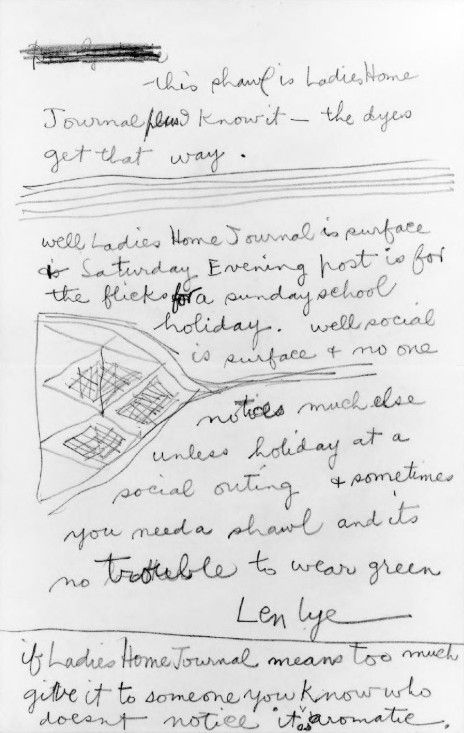 this shawl is Ladies Home
Journal and I know it – the dyes
get that way.
well Ladies Home Journal is surface
& Saturday Evening post is for
the flicks for a sunday school
holiday. well social
is surface & no one
notices much else
unless holiday at a
social outing & sometimes
you need a shawl and its
no trouble to wear green
Len Lye
if Ladies Home Journal means too much
give it to someone you know who
doesnt notice its aromatic.